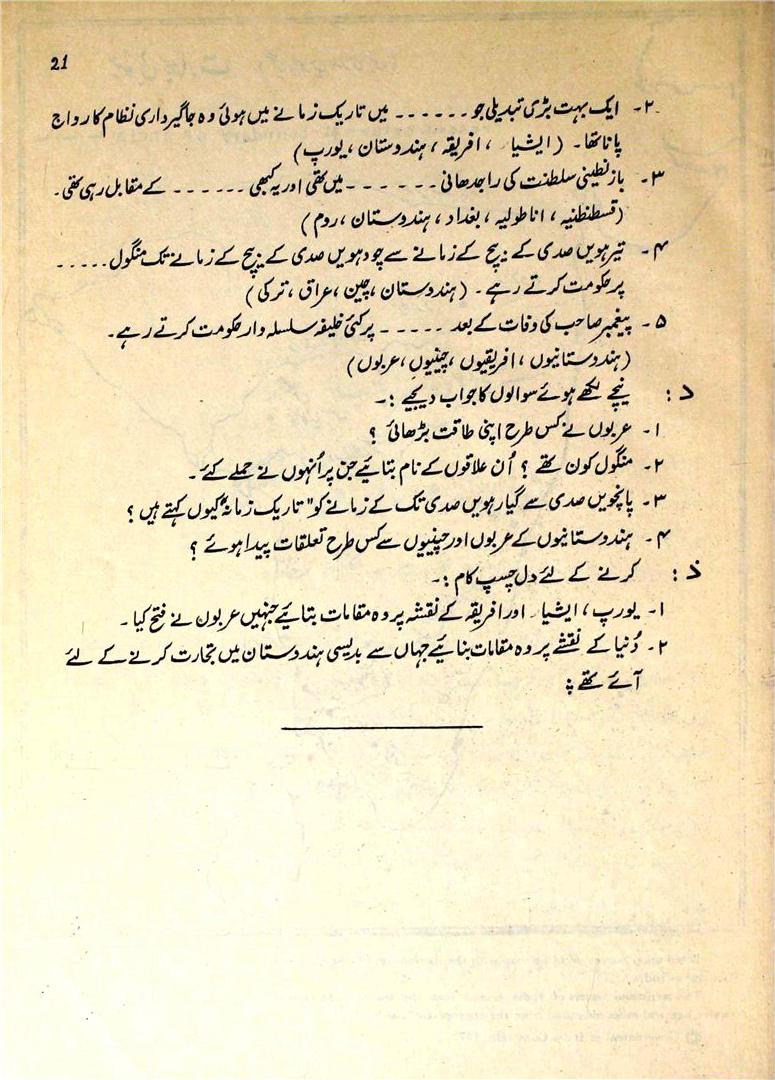 21
۲۔ ایک بہت بڑی تبدیلی جو ۔۔۔۔۔۔ میں تاریک زمانے میں ہوئی وہ جاگیرداری نظام کا رواج
پانا تھا۔ (ایشیاء ، افریقہ ، ہندوستان ، یورپ)
۳۔ بازنطینی سلطنت کی راجدھانی ۔۔۔۔۔۔ میں تھی اور یہ کبھی ۔۔۔۔۔۔ کے مقابل رہی تھی۔
(قسطنطنیہ ، اناطولیہ ، بغداد ، ہندوستان ، روم)
۴۔ تیرہویں صدی کے بیچ کے زمانے سے چودہویں صدی کے بیچ کے زمانے تک منگول ۔۔۔۔۔
پر حکومت کرتے رہے۔ (ہندوستان ، چین ، عراق ، ترکی)
۵۔ پیغمبر صاحب کی وفات کے بعد ۔۔۔۔۔ پر کئی خلیفہ سلسلہ وار حکومت کرتے رہے۔
(ہندوستانیوں ، افریقیوں ، چینیوں ، عربوں)
د : نیچے لکھے ہوئے سوالوں کا جواب دیجیے :۔
۱۔ عربوں نے کس طرح اپنی طاقت بڑھائی ؟
۲۔ منگول کون تھے ؟ اُن علاقوں کے نام بتائیے جن پر اُنہوں نے حملے کئے۔
۳۔ پانچویں صدی سے گیارہویں صدی تک کے زمانے کو "تاریک زمانہ" کیوں کہتے ہیں ؟
۴۔ ہندوستانیوں کے عربوں اور چینیوں سے کس طرح تعلقات پیدا ہوئے ؟
ذ : کرنے کے لئے دل چسپ کام :۔
۱۔ یورپ ، ایشیاء اور افریقہ کے نقشہ پر وہ مقامات بتائیے جنہیں عربوں نے فتح کیا۔
۲۔ دُنیا کے نقشے پر وہ مقامات بنائیے جہاں سے بدیسی ہندوستان میں تجارت کرنے کے لئے
آئے تھے ؞